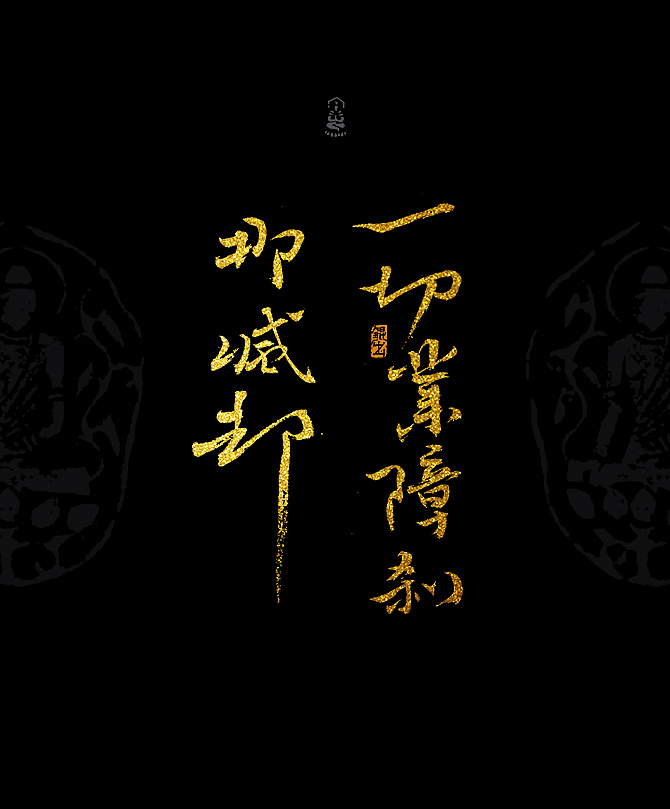 一切業障刹
那滅却